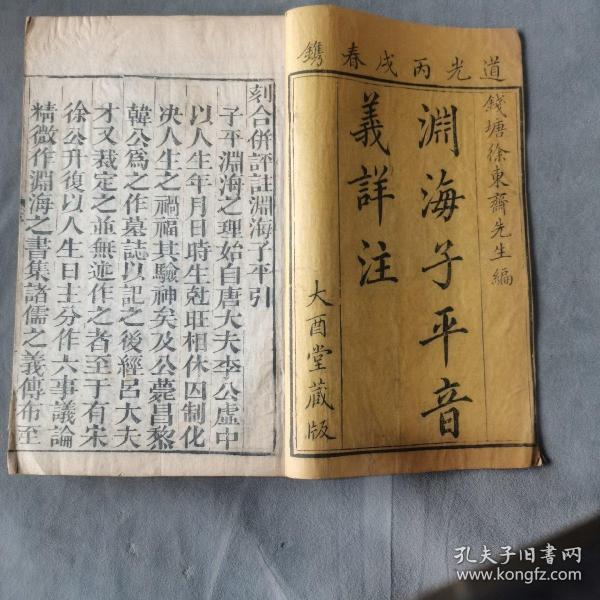 道光丙戌春鐫
錢塘徐東齋先生編
淵海子平音
義詳注
大酉堂藏版
刻合併評註淵海子平引
子平淵海之理始自唐大夫李公虛中
以人生年月日時生尅旺相休囚制化
决人生之禍福其驗神矣及公薨昌黎
韓公爲之作墓誌以記之後經呂大夫
才又裁定之並無述作之者至于有宋
徐公升復以人生日主分作六事議論
精微作淵海之書集諸儒之義傳布至
孔夫子旧书网
www.kongfz.com